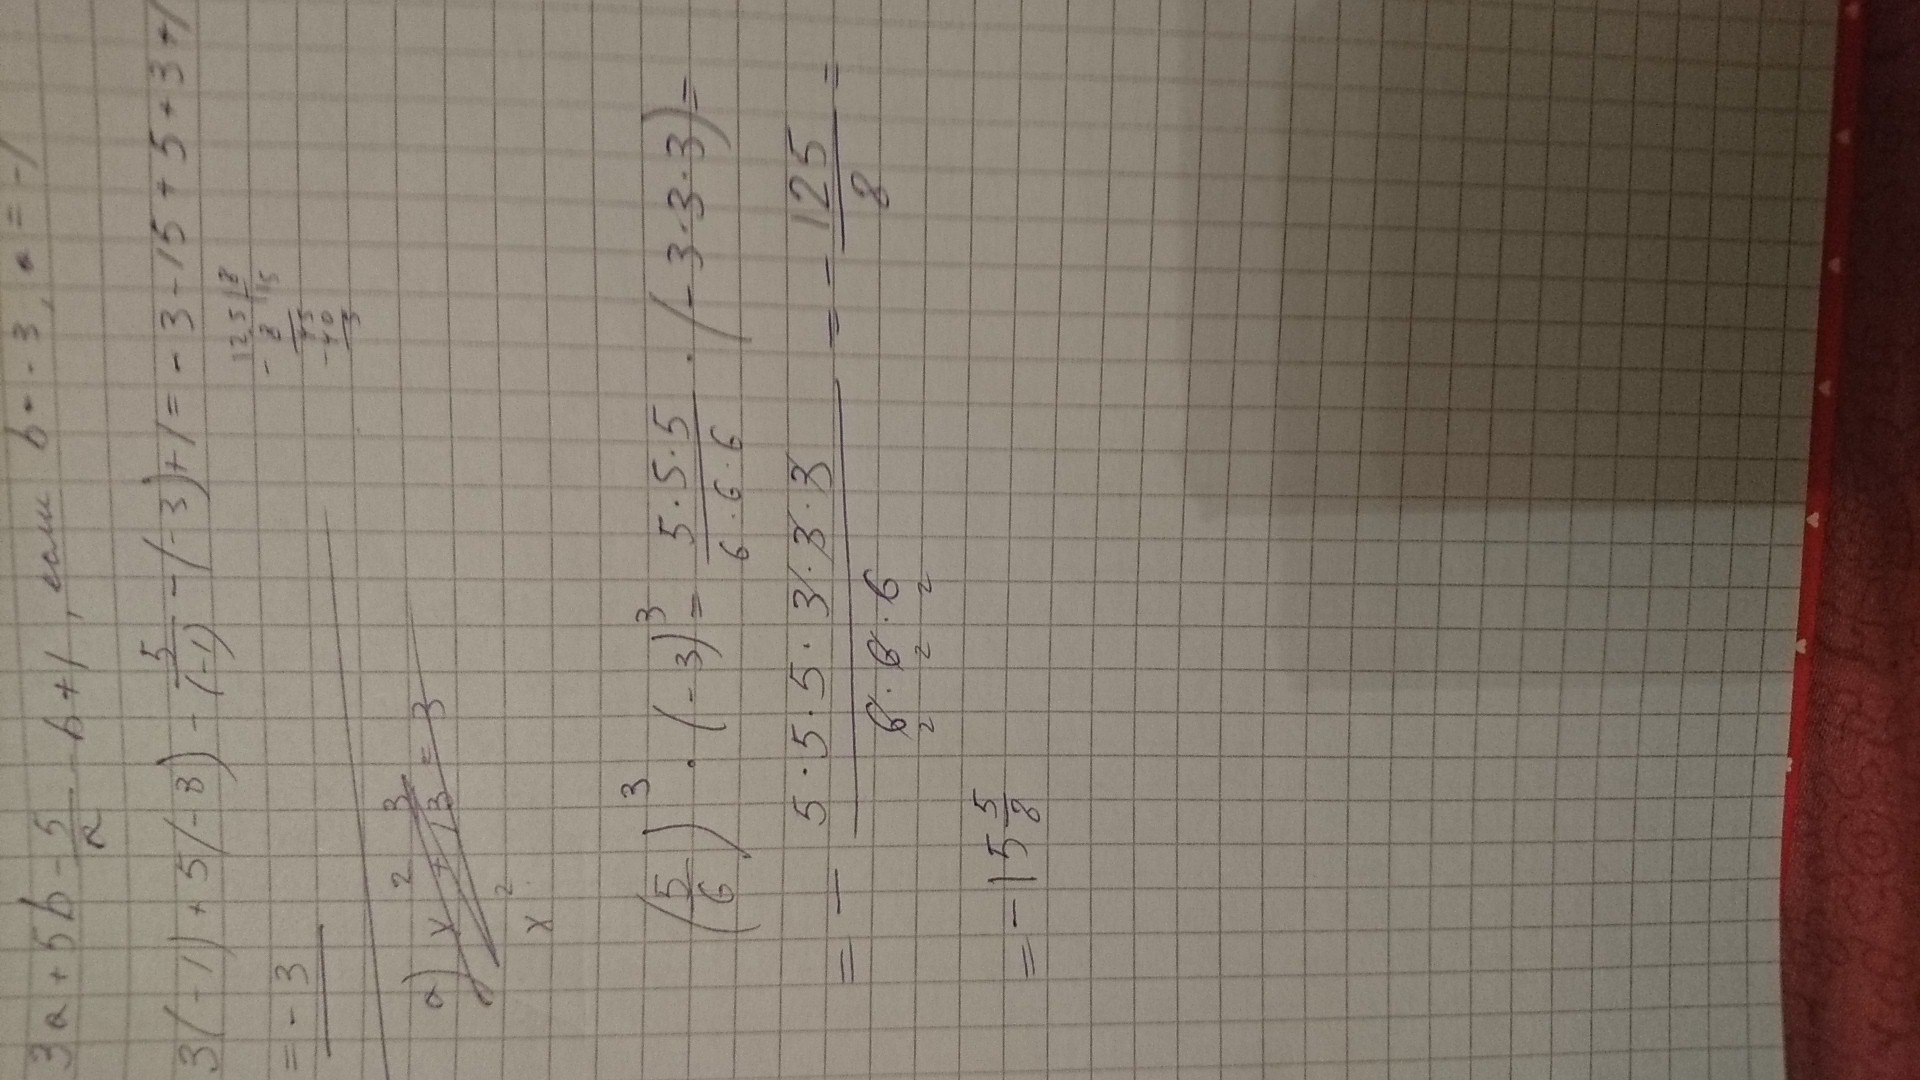 3a + 5b - 5/a - b + 1, если b = -3, a = -1
3(-1) + 5(-3) - 5/(-1) - (-3) + 1 = -3 - 15 + 5 + 3 + 1
= -3
125 | 8
- 8 | 15
45
- 40
5
a) x² + 13 = 3
x²
(5/6)³ · (-3)³ = 5·5·5/6·6·6 · (-3·3·3) =
= - 5·5·5·3·3·3/6·6·6 = - 125/8 =
2 2 2
= -15 5/8